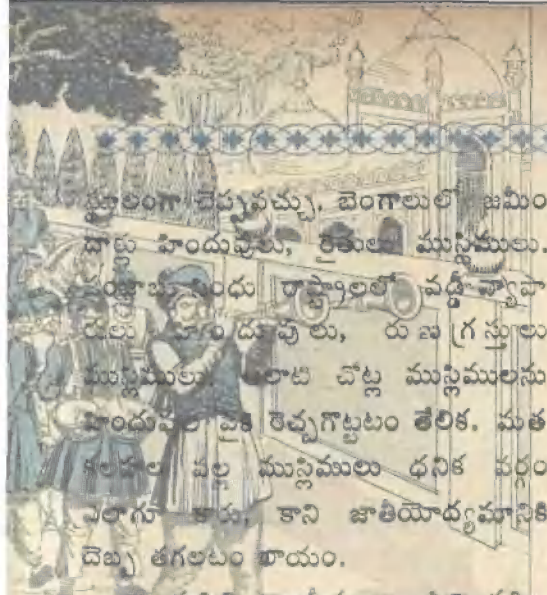 స్థూలంగా చెప్పవచ్చు. బెంగాలులో జమీం
దార్లు హిందువులు, రైతులు ముస్లిములు.
పంజాబు సింధు రాష్ట్రాలలో వడ్డీ వ్యాపా
రులు హిందువులు, రుణగ్రస్తులు
ముస్లిములు. చోట్ల ముస్లిములను
హిందువుల పైకి రెచ్చగొట్టటం తేలిక. మత
కలహాల వల్ల ముస్లిములు ధనిక వర్గం
ఎలాగూ కారు, కాని జాతీయోద్యమానికి
దెబ్బ తగలటం ఖాయం.